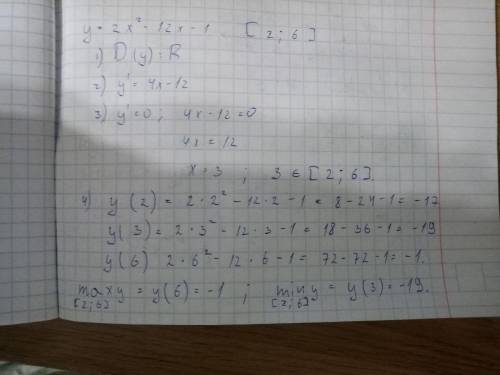 y = 2x² - 12x - 1 [2; 6]
1) D(y) : R
2) y' = 4x - 12
3) y' = 0 ; 4x - 12 = 0
4x = 12
x = 3 ; 3 ∈ [2; 6].
4) y(2) = 2·2² - 12·2 - 1 = 8 - 24 - 1 = -17
y(3) = 2·3² - 12·3 - 1 = 18 - 36 - 1 = -19
y(6) 2·6² - 12·6 - 1 = 72 - 72 - 1 = -1.
max y = y(6) = -1 ; min y = y(3) = -19.
[2; 6] [2; 6]